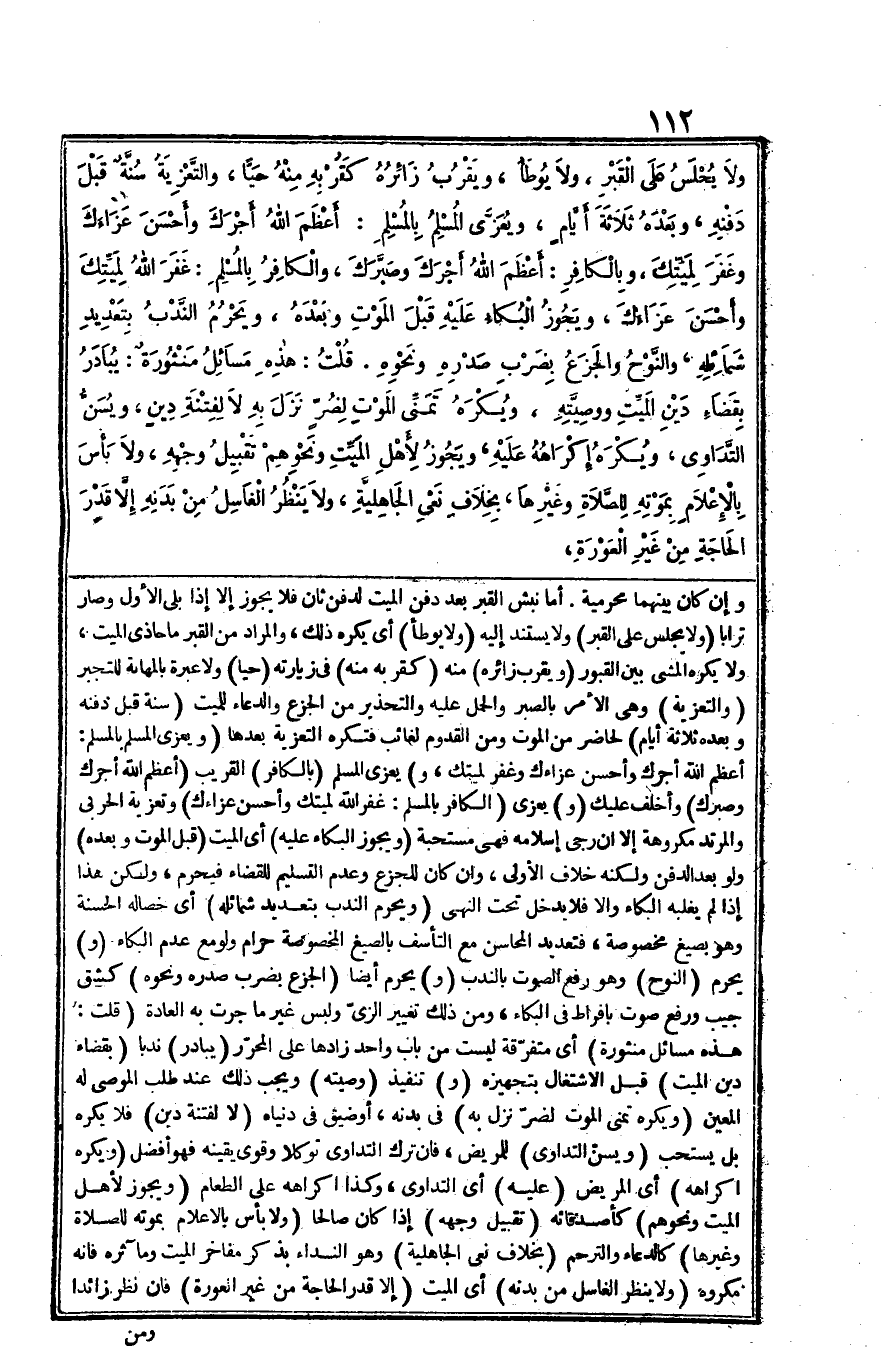 ١١٢
ولَا يُجْلَسُ عَلَى الْقَبْرِ ، ولَا يُوطَأُ ، ويَقْرُبُ زَائِرُهُ كَقُرْبِهِ مِنْهُ حَيًّا ، والتَّعْزِيَةُ سُنَّةٌ قَبْلَ
دَفْنِهِ ، وبَعْدَهُ ثَلَاثَةَ أَيَّامٍ ، ويُعَزَّى الْمُسْلِمُ بِالْمُسْلِمِ : أَعْظَمَ اللهُ أَجْرَكَ وأَحْسَنَ عَزَاءَكَ
وغَفَرَ لِمَيِّتِكَ ، وبِالْكَافِرِ : أَعْظَمَ اللهُ أَجْرَكَ وصَبَّرَكَ ، والْكَافِرُ بِالْمُسْلِمِ : غَفَرَ اللهُ لِمَيِّتِكَ
وأَحْسَنَ عَزَاءَكَ ، ويَجُوزُ الْبُكَاءُ عَلَيْهِ قَبْلَ الْمَوْتِ وبَعْدَهُ ، ويَحْرُمُ النَّدْبُ بِتَعْدِيدِ
شَمَائِلِهِ ، والنَّوْحُ والْجَزَعُ بِضَرْبِ صَدْرِهِ ونَحْوِهِ . قُلْتُ : هٰذِهِ مَسَائِلُ مَنْثُورَةٌ : يُبَادَرُ
بِقَضَاءِ دَيْنِ الْمَيِّتِ ووَصِيَّتِهِ ، ويُكْرَهُ تَمَنِّى الْمَوْتِ لِضُرٍّ نَزَلَ بِهِ لَا لِفِتْنَةِ دِينٍ ، ويُسَنُّ
التَّدَاوِى ، ويُكْرَهُ إِكْرَاهُهُ عَلَيْهِ ، ويَجُوزُ لِأَهْلِ الْمَيِّتِ ونَحْوِهِمْ تَقْبِيلُ وجْهِهِ ، ولَا بَأْسَ
بِالْإِعْلَامِ بِمَوْتِهِ لِلصَّلَاةِ وغَيْرِهَا ، بِخِلَافِ نَعْىِ الْجَاهِلِيَّةِ ، ولَا يَنْظُرُ الْغَاسِلُ مِنْ بَدَنِهِ إِلَّا قَدْرَ
الْحَاجَةِ مِنْ غَيْرِ الْعَوْرَةِ ،
وإن كان بينهما محرمية . أما نبش القبر بعد دفن الميت لدفن ثان فلا يجوز إلا إذا بلى الأول وصار
ترابا (ولا يجلس على القبر) ولا يستند إليه (ولا يوطأ) أى يكره ذلك ، والمراد من القبر ما حاذى الميت ،
ولا يكره المشى بين القبور (ويقرب زائره) منه (كقربه منه) فى زيارته (حيا) ولا عبرة بالمهابة للتجبر
(والتعزية) وهى الأمر بالصبر والحمل عليه والتحذير من الجزع والدعاء للميت (سنة قبل دفنه
وبعده ثلاثة أيام) لحاضر من الموت ومن القدوم لغائب فتكره التعزية بعدها (ويعزى المسلم بالمسلم :
أعظم الله أجرك وأحسن عزاءك وغفر لميتك ، و) يعزى المسلم (بالكافر) القريب (أعظم الله أجرك
وصبرك) وأخلف عليك (و) يعزى (الكافر بالمسلم : غفر الله لميتك وأحسن عزاءك) وتعزية الحربى
والمرتد مكروهة إلا ان رجى إسلامه فهى مستحبة (ويجوز البكاء عليه) أى الميت (قبل الموت وبعده)
ولو بعد الدفن ولكنه خلاف الأولى ، وان كان للجزع وعدم التسليم للقضاء فيحرم ، ولكن هذا
إذا لم يغلبه البكاء والا فلا يدخل تحت النهى (ويحرم الندب بتعديد شمائله) أى خصاله الحسنة
وهو بصيغ مخصوصة ، فتعديد المحاسن مع التأسف بالصيغ المخصوصة حرام ولو مع عدم البكاء (و)
يحرم (النوح) وهو رفع الصوت بالندب (و) يحرم أيضا (الجزع بضرب صدره ونحوه) كشق
جيب ورفع صوت بإفراط فى البكاء ، ومن ذلك تغيير الزىّ ولبس غير ما جرت به العادة (قلت :
هذه مسائل منثورة) أى متفرّقة ليست من باب واحد زادها على المحرّر (يبادر) ندبا (بقضاء
دين الميت) قبل الاشتغال بتجهيزه (و) تنفيذ (وصيته) ويجب ذلك عند طلب الموصى له
المعين (ويكره تمنى الموت لضرّ نزل به) فى بدنه ، أو ضيق فى دنياه (لا لفتنة دين) فلا يكره
بل يستحب (ويسنّ التداوى) للمريض ، فان ترك التداوى توكلا وقوى يقينه فهو أفضل (ويكره
اكراهه) أى المريض (عليه) أى التداوى ، وكذا اكراهه على الطعام (ويجوز لأهل
الميت ونحوهم) كأصدقائه (تقبيل وجهه) إذا كان صالحا (ولا بأس بالاعلام بموته للصلاة
وغيرها) كالدعاء والترحم (بخلاف نعى الجاهلية) وهو النداء بذكر مفاخر الميت ومآثره فانه
مكروه (ولا ينظر الغاسل من بدنه) أى الميت (إلا قدر الحاجة من غير العورة) فان نظر زائدا
ومن